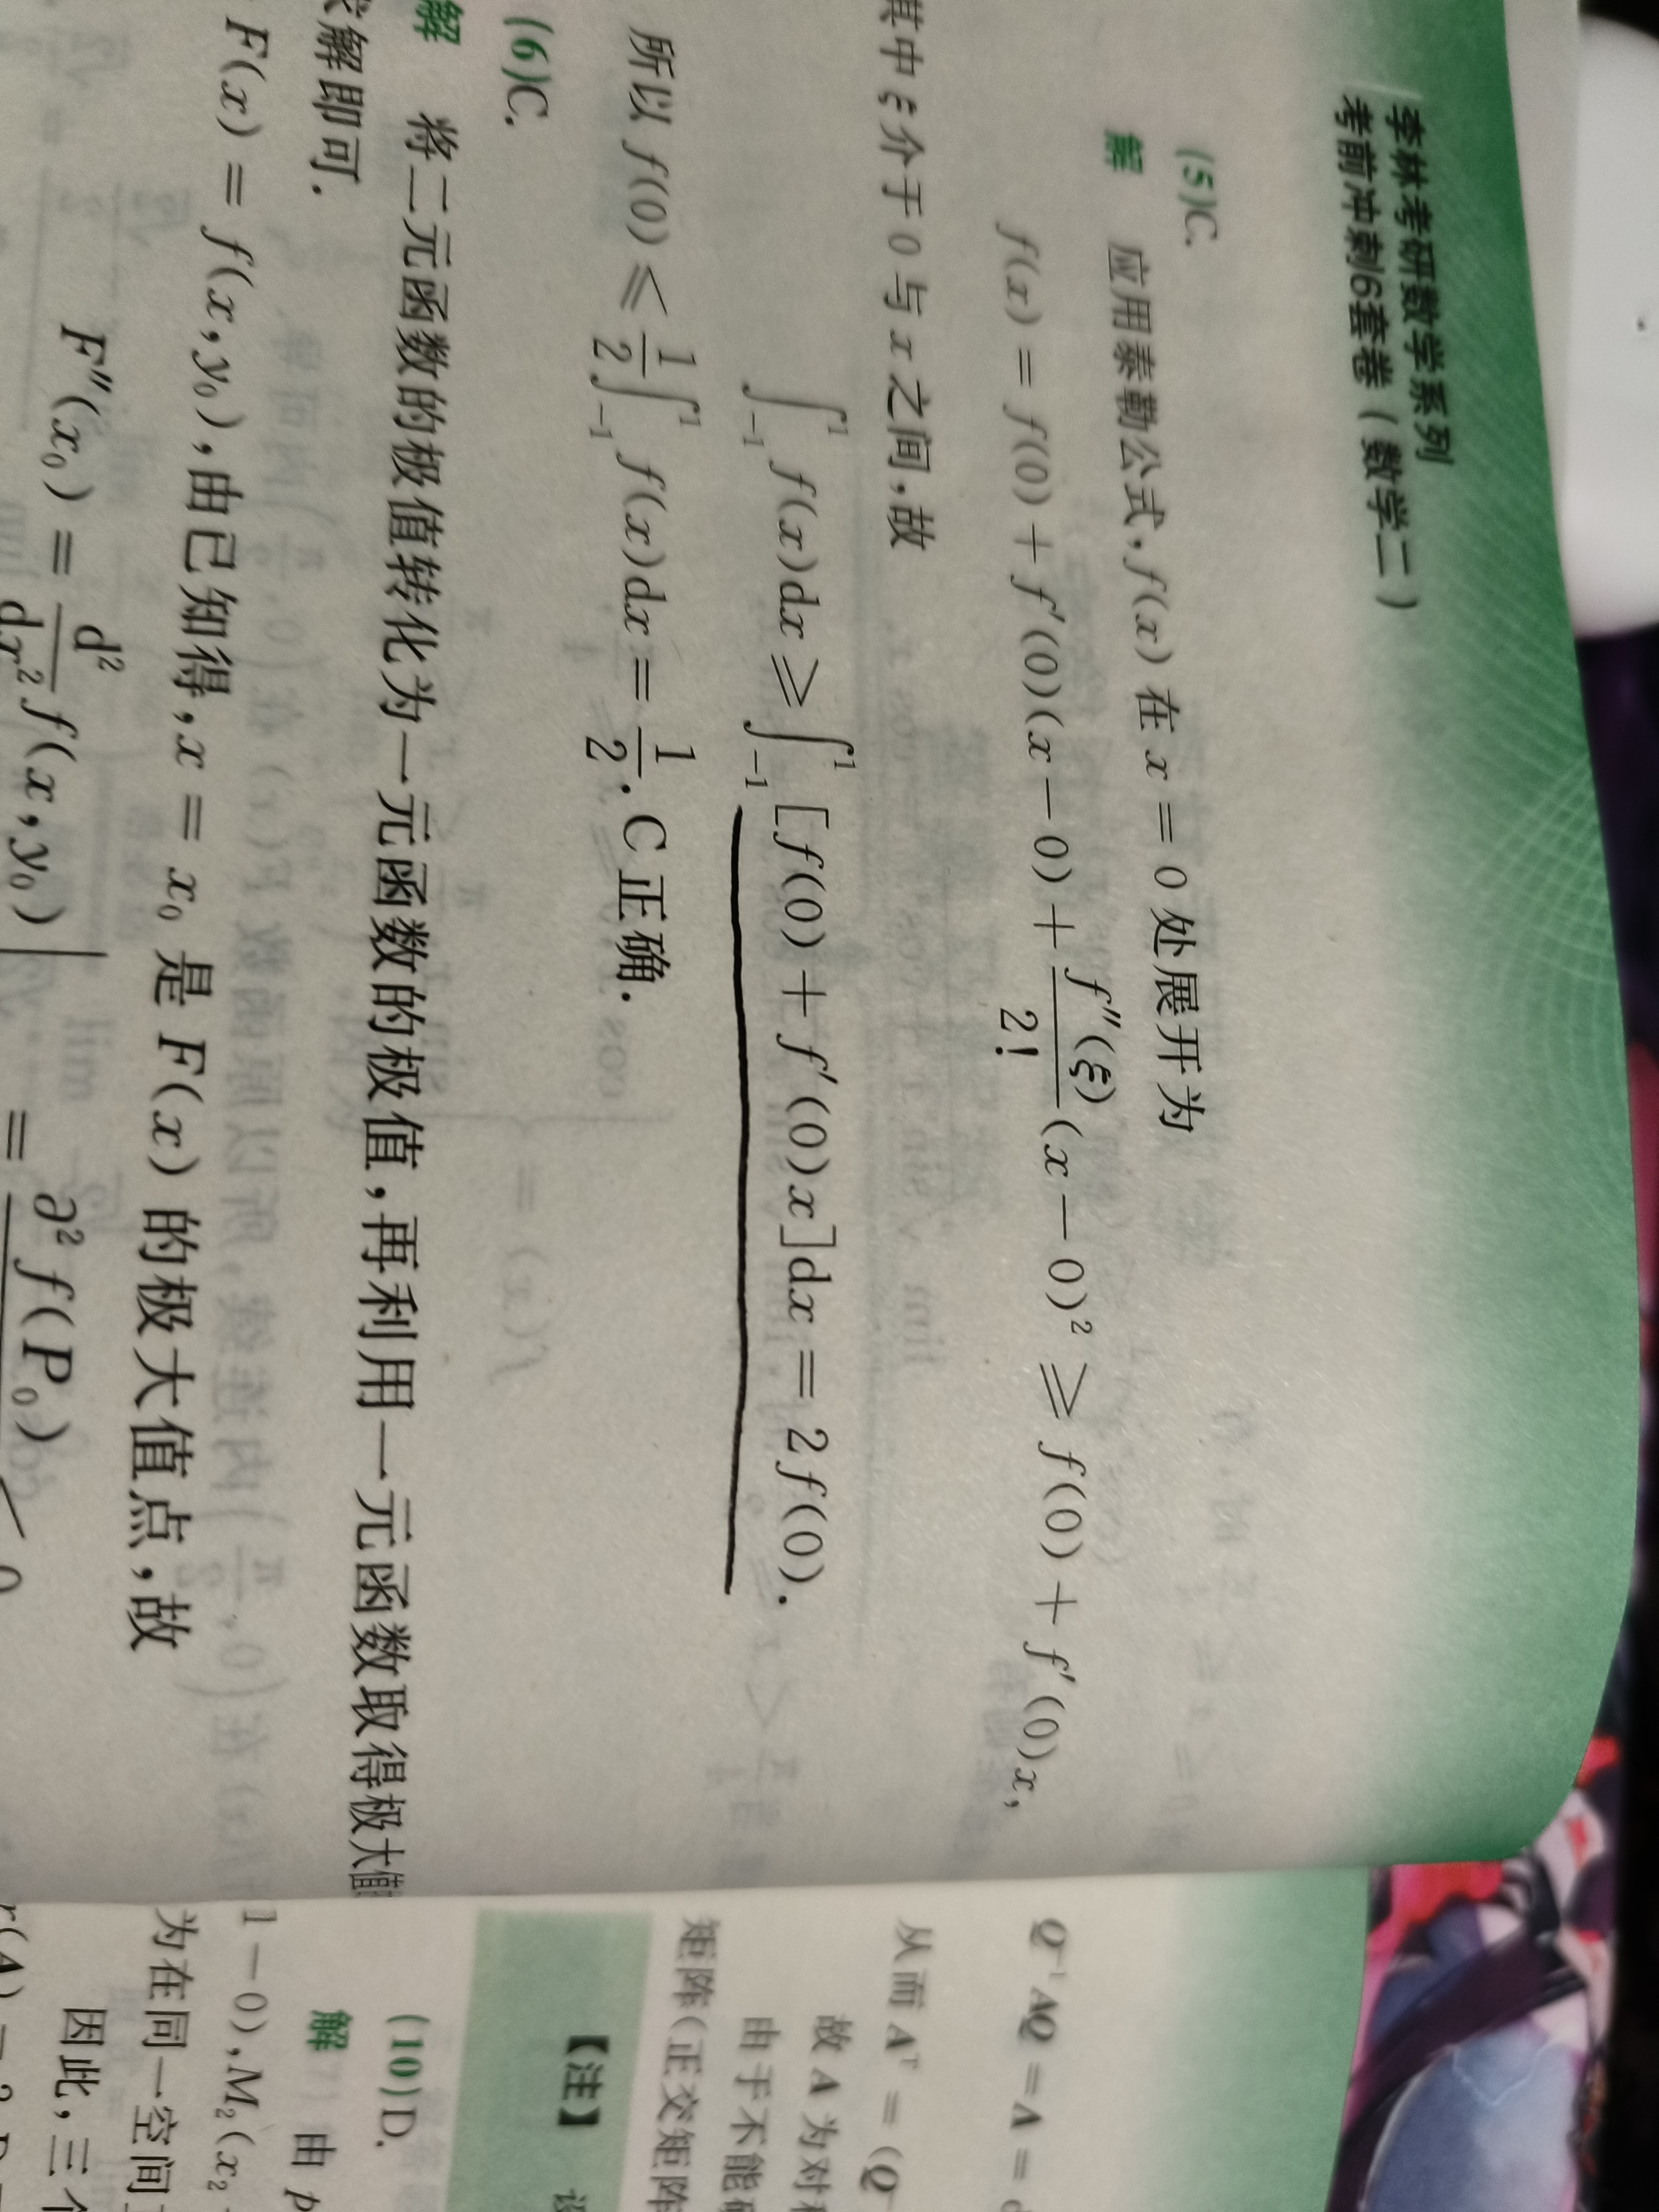 李林考研数学系列
考前冲刺6套卷(数学二)
(5)C.
解 应用泰勒公式,f(x) 在 x = 0 处展开为
f(x) = f(0) + f′(0)(x − 0) + f″(ξ)/2! (x − 0)² ⩾ f(0) + f′(0)x,
其中 ξ 介于 0 与 x 之间,故
∫₋₁¹ f(x)dx ⩾ ∫₋₁¹ [f(0) + f′(0)x]dx = 2f(0).
所以 f(0) ⩽ 1/2 ∫₋₁¹ f(x)dx = 1/2. C 正确.
(6)C.
解 将二元函数的极值转化为一元函数的极值,再利用一元函数取得极大值
求解即可.
F(x) = f(x,y₀),由已知得,x = x₀ 是 F(x) 的极大值点,故
F″(x₀) = d²/dx² f(x,y₀)| = ∂²f(P₀)
Q⁻¹AQ = Λ =
从而 Aᵀ = (Q⁻
故 A 为对
由于不能
矩阵(正交矩阵
【注】
(10)D.
解 由
1 − 0),M₂(x₂
为在同一空间
因此,三个
r(A) =